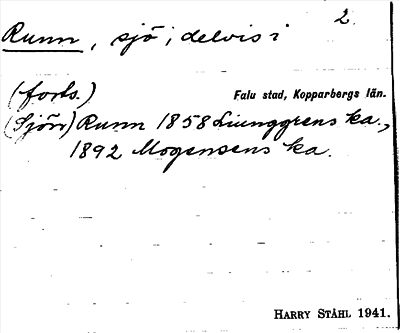 2.
Runn, sjö, delvis i
(forts.)
Falu stad, Kopparbergs län.
(Sjön) Runn 1858 Liunggrens ka.,
1892 Mogensens ka.
HARRY STÅHL 1941.